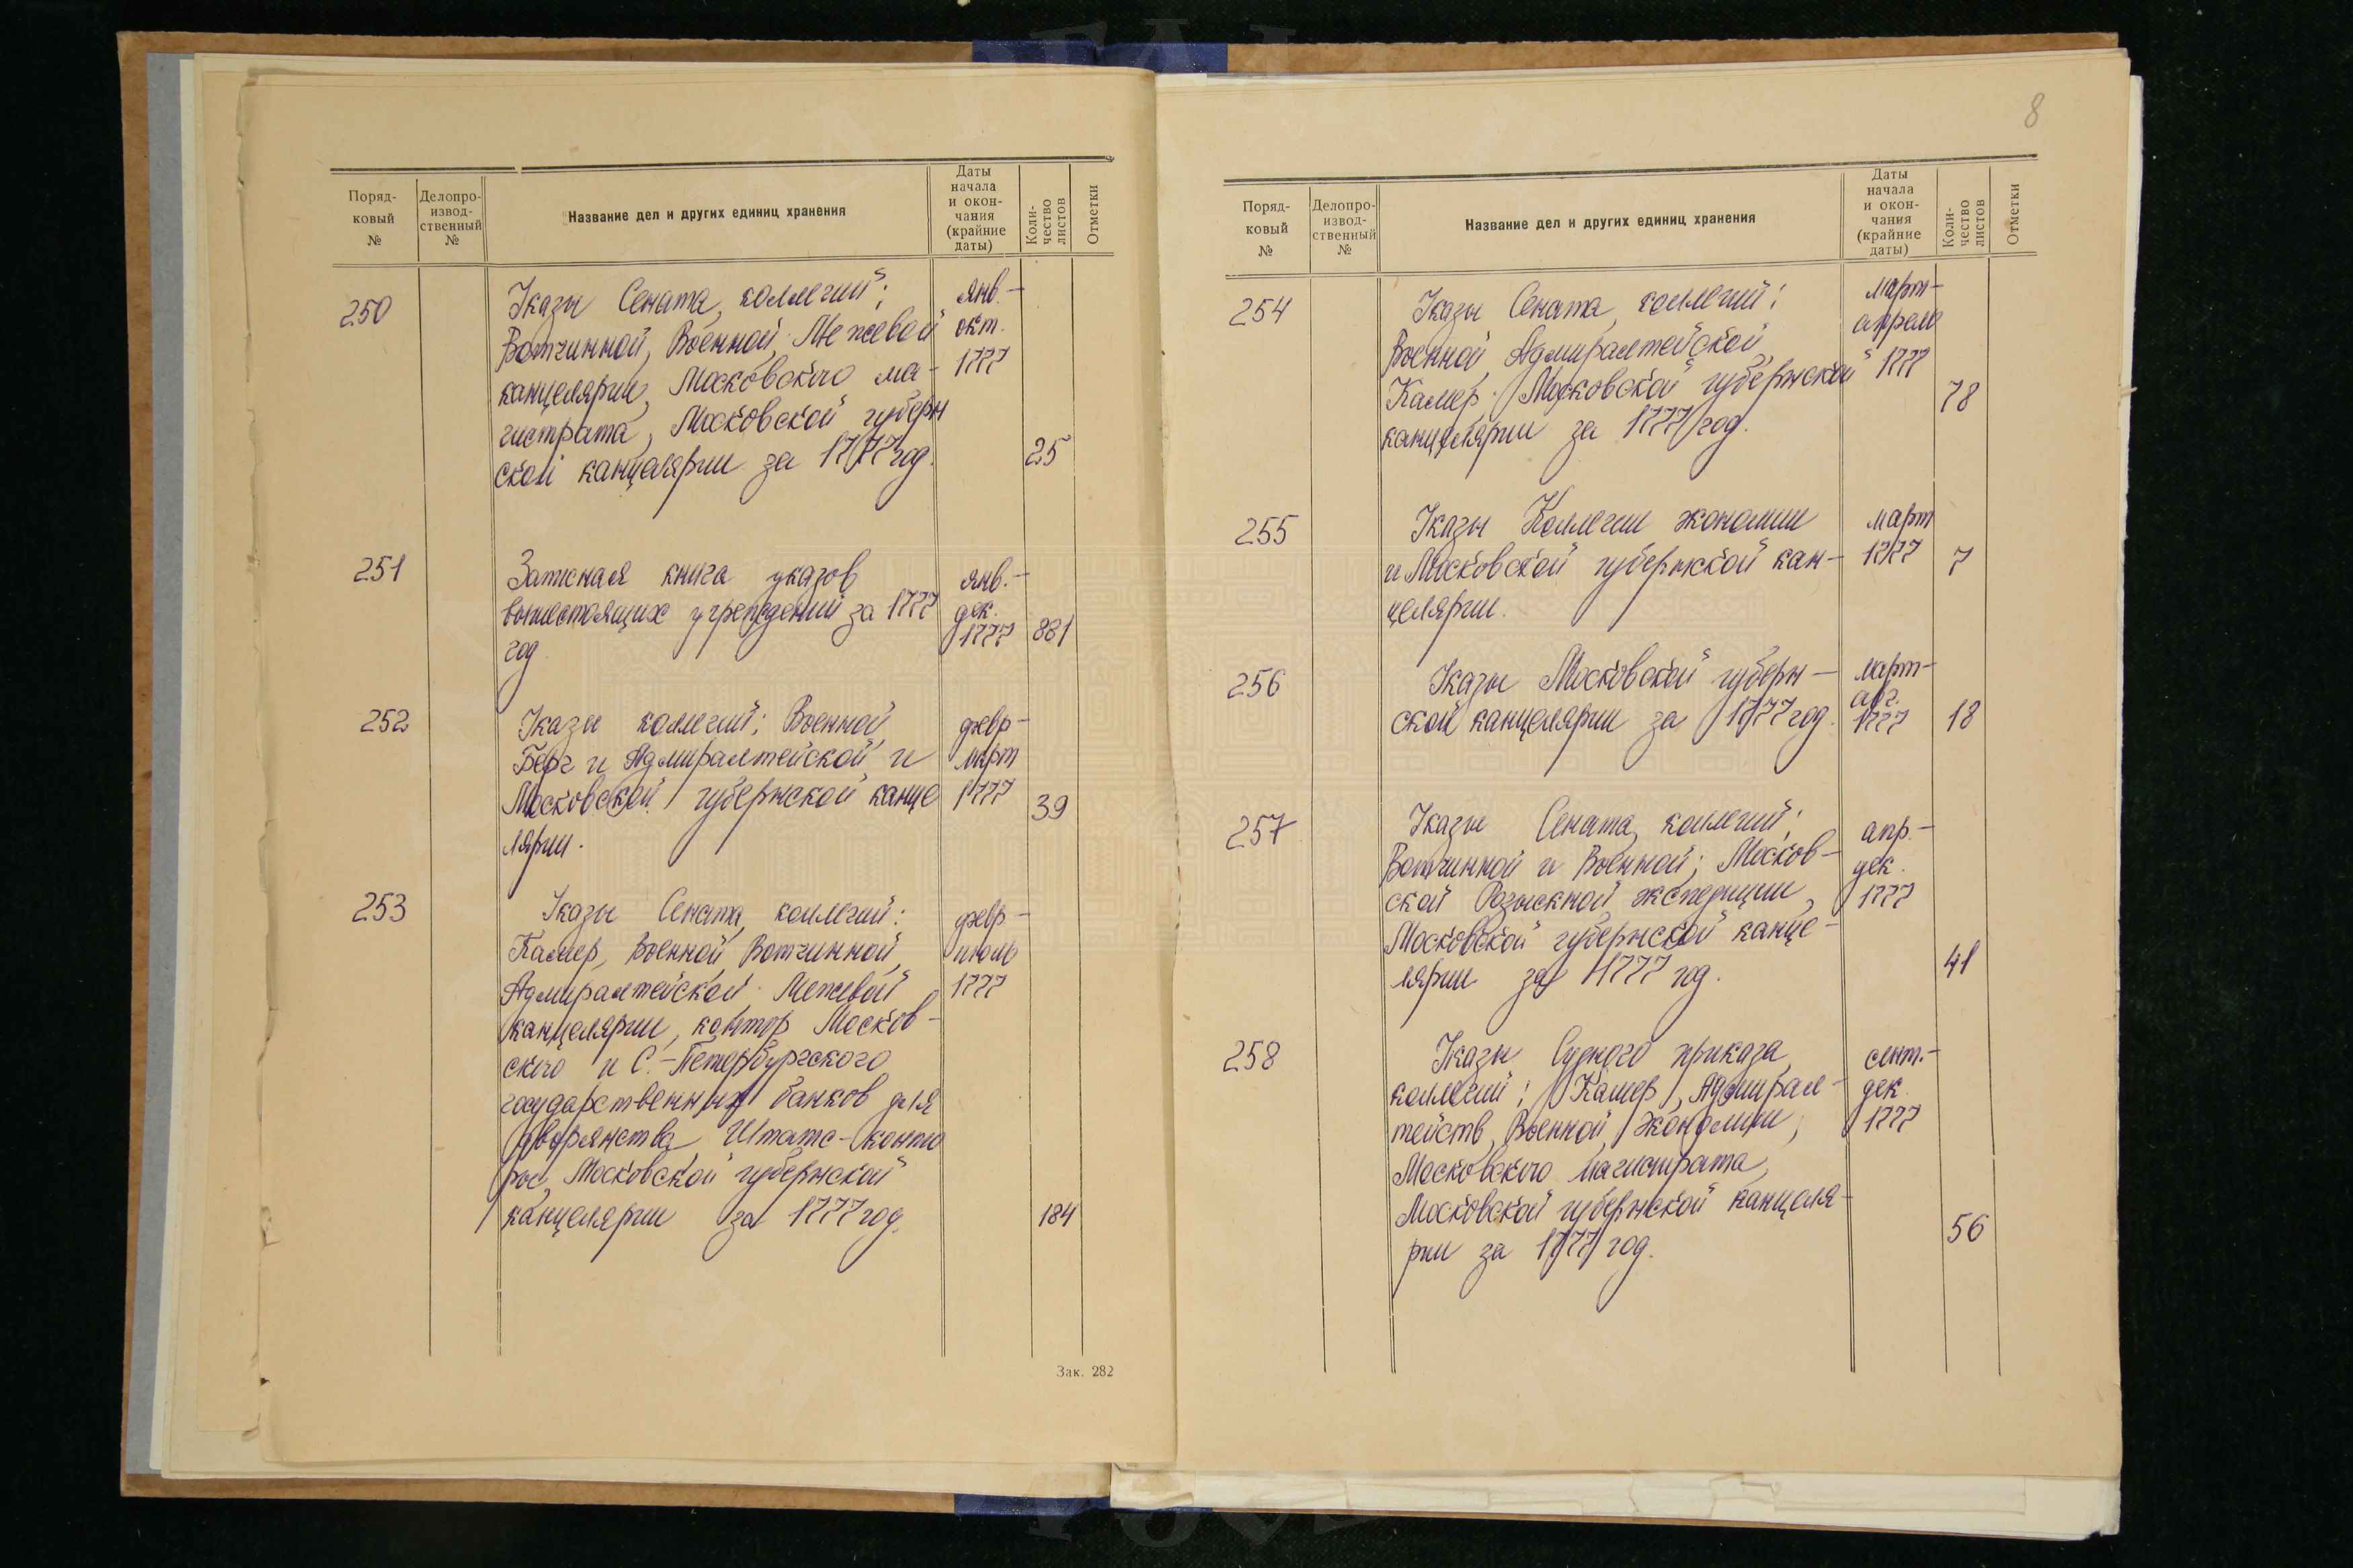 Поряд-
ковый
№
Делопро-
извод-
ственный
№
Название дел и других единиц хранения
Даты
начала
и окон-
чания
(крайние
даты)
Коли-
чество
листов
Отметки
250
Указы Сената, коллегий:
Вотчинной, Военной, Межевой
канцелярии, Московского ма-
гистрата, Московской губерн
ской канцелярии за 1777 год.
янв.-
окт.
1777
25
251
Записная книга указов
вышестоящих учреждений за 1777
год
янв.-
дек.
1777
881
252
Указы коллегий: Военной,
Берг и Адмиралтейской и
Московской губернской канце
лярии.
февр-
март
1777
39
253
Указы Сената, коллегий:
Камер, Военной, Вотчинной,
Адмиралтейской, Межевой
канцелярии, контор Москов-
ского и С.-Петербургского
государственных банков для
дворянства, Штатс-конто
ры, Московской губернской
канцелярии за 1777 год.
февр-
июль
1777
184
Зак. 282
8
Поряд-
ковый
№
Делопро-
извод-
ственный
№
Название дел и других единиц хранения
Даты
начала
и окон-
чания
(крайние
даты)
Коли-
чество
листов
Отметки
254
Указы Сената, коллегий:
Военной, Адмиралтейской,
Камер, Московской губернской
канцелярии за 1777 год.
март-
апрель
1777
78
255
Указы Коллегии экономии
и Московской губернской кан-
целярии.
март
1777
7
256
Указы Московской губерн-
ской канцелярии за 1777 год.
март-
авг.
1777
18
257
Указы Сената, коллегий:
Вотчинной и Военной; Москов-
ской Розыскной экспедиции,
Московской губернской канце-
лярии за 1777 год.
апр.-
дек.
1777
41
258
Указы Судного приказа,
коллегий: Камер, Адмирал-
тейств, Военной, Экономии,
Московского магистрата,
Московской губернской канцеля-
рии за 1777 год.
сент.-
дек.
1777
56